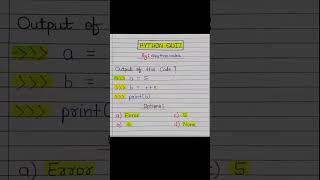 Output of
>>>> a =
>>>> b =
>>>> print(
a) Error
5
PYTHON QUIZ
Output of this Code?
>>>> a = 5
>>>> b = ++a
>>>> print(b)
Options:
a) Error
c) 5
b) 6
d) None